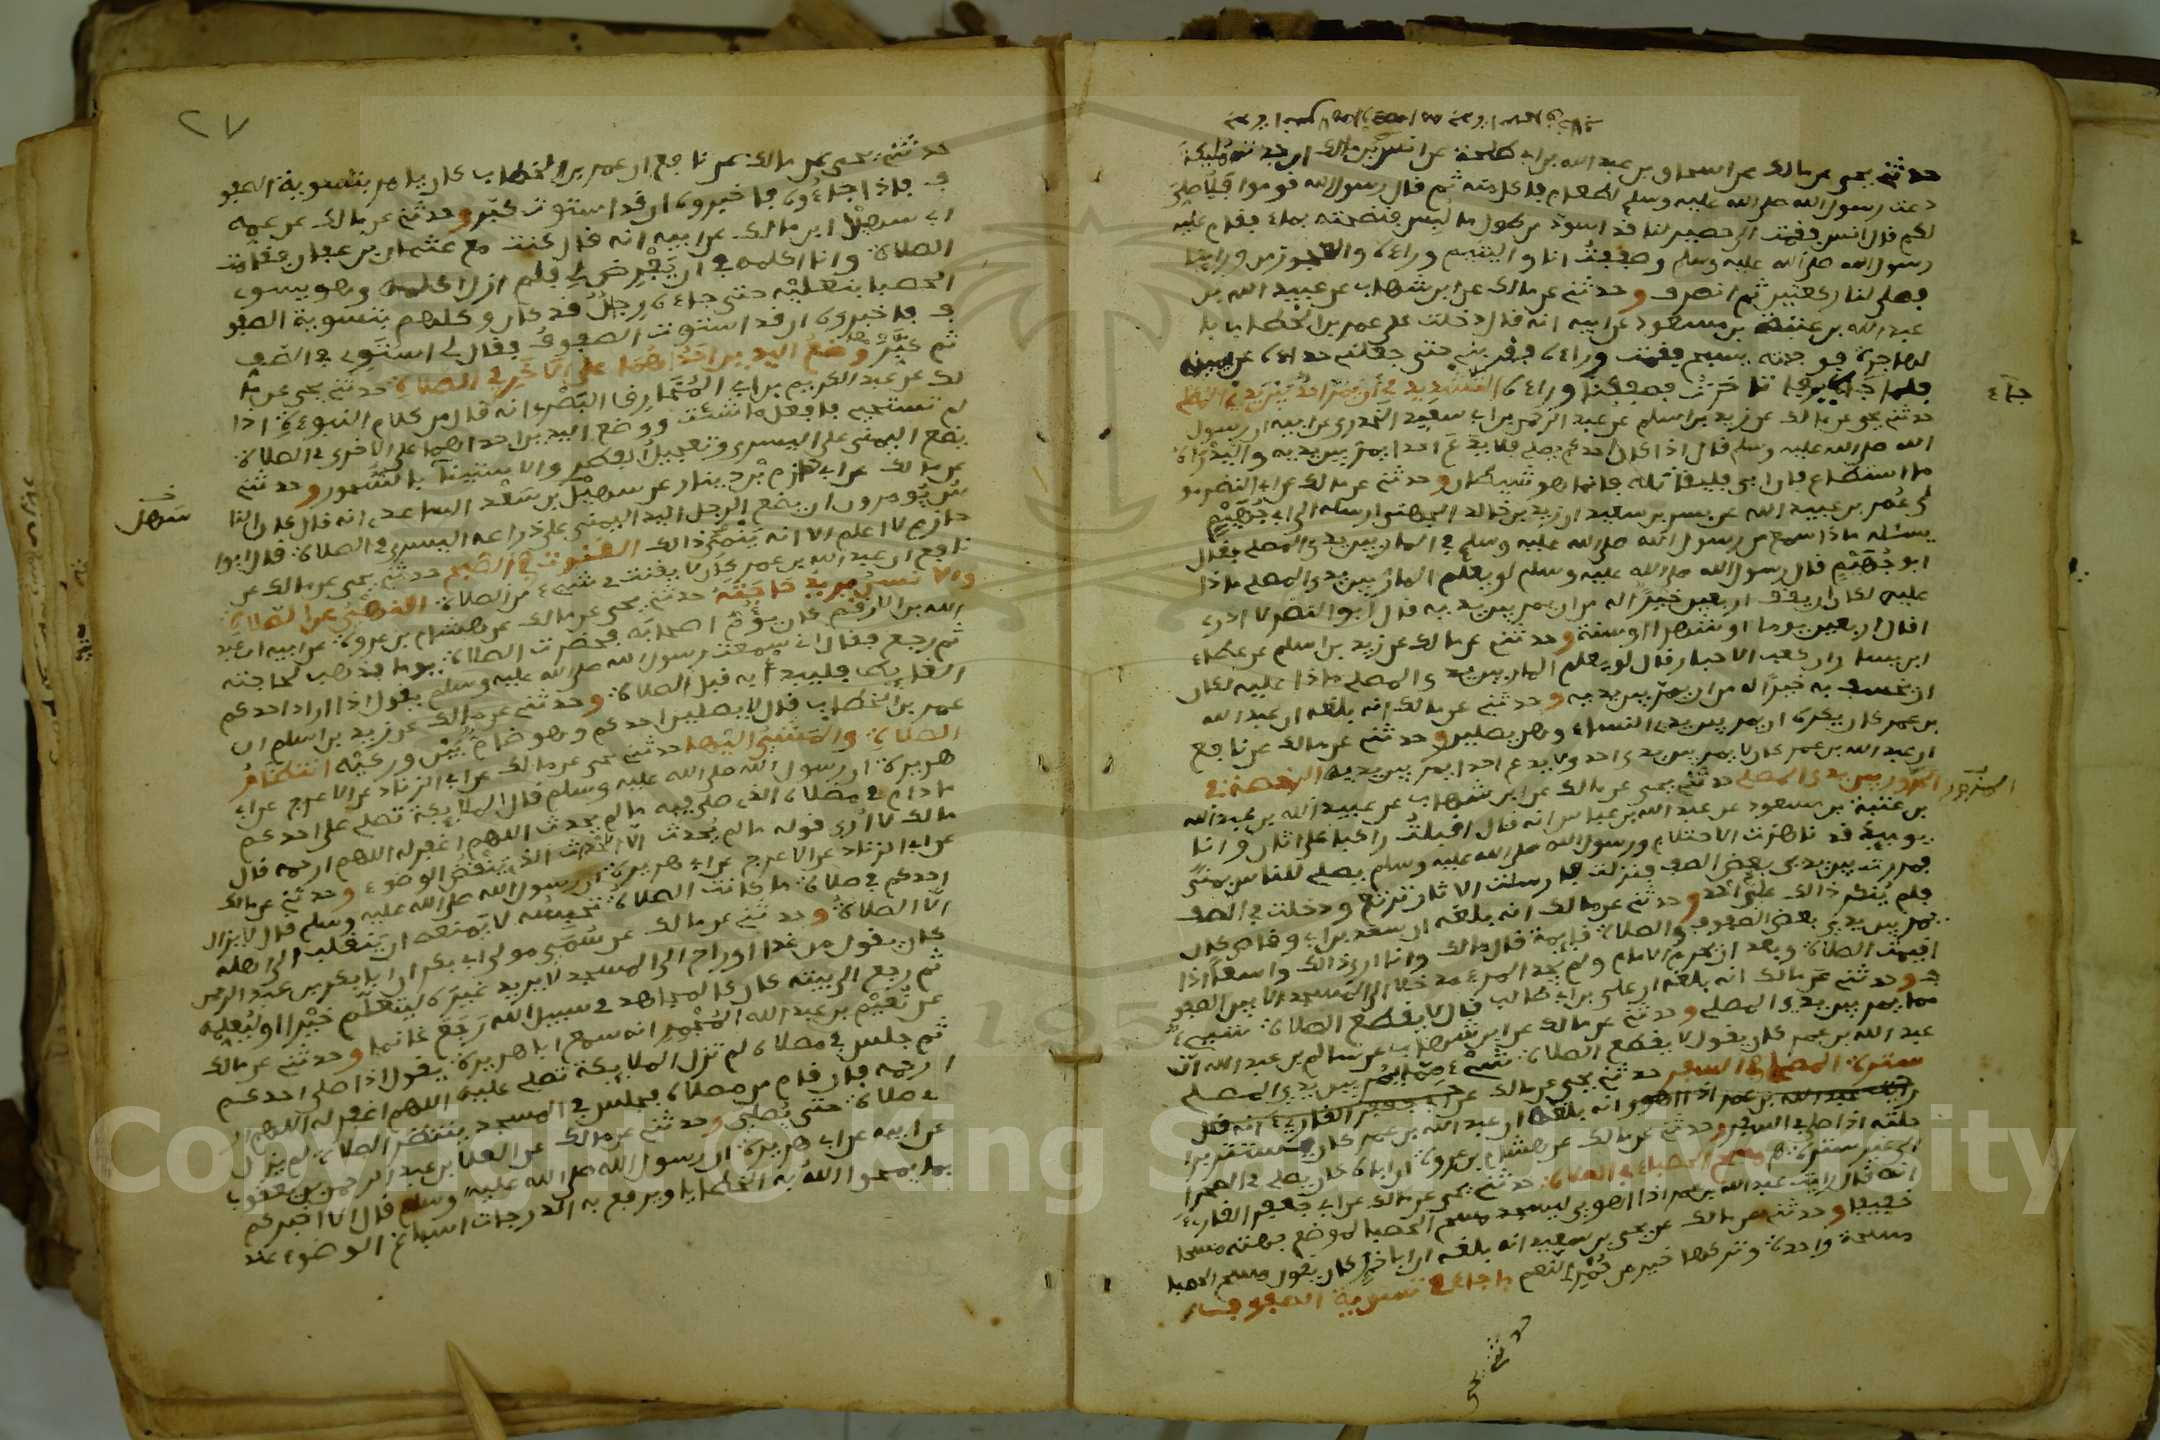 حدثنى يحيى عن مالك عن اسحاق بن عبد الله بن ابى طلحة عن انس بن مالك ان جدته مليكة
دعت رسول الله صلى الله عليه وسلم لطعام فاكل منه ثم قال رسول الله قوموا فلأصلى
لكم قال انس فقمت الى حصير لنا قد اسود من طول ما لبس فنضحته بماء فقام عليه
رسول الله صلى الله عليه وسلم وصففت انا واليتيم وراءه والعجوز من ورائنا
فصلى لنا ركعتين ثم انصرف وحدثنى عن مالك عن ابن شهاب عن عبيد الله بن
عبد الله بن عتبة بن مسعود عن ابيه انه قال دخلت على عمر بن الخطاب با
لهاجرة فوجدته يسبح فقمت وراءه فقربنى حتى جعلنى حذاءه عن يمينه
فلما جاء يرفا تاخرت فصففنا وراءه التشديد فى ان يمر احد بين يدى المصلى
جاء
حدثنى يحيى عن مالك عن زيد بن اسلم عن عبد الرحمن بن ابى سعيد الخدرى عن ابيه ان رسول
الله صلى الله عليه وسلم قال اذا كان احدكم يصلى فلا يدع احدا يمر بين يديه وليدرأه
ما استطاع فان ابى فليقاتله فانما هو شيطان وحدثنى عن مالك عن ابى النضر مو
لى عمر بن عبيد الله عن بسر بن سعيد ان زيد بن خالد الجهنى ارسله الى ابى جهيم
يسئله ماذا سمع من رسول الله صلى الله عليه وسلم فى المار بين يدى المصلى فقال
ابو جهيم قال رسول الله صلى الله عليه وسلم لو يعلم المار بين يدى المصلى ماذا
عليه لكان ان يقف اربعين خيرا له من ان يمر بين يديه قال ابو النضر لا ادرى
اقال اربعين يوما او شهرا او سنة وحدثنى عن مالك عن زيد بن اسلم عن عطاء
ابن يسار ان كعب الاحبار قال لو يعلم المار بين يدى المصلى ماذا عليه لكان
ان يخسف به خيرا له من ان يمر بين يديه وحدثنى عن مالك انه بلغه ان عبد الله
بن عمر كان يكره ان يمر بين يدى النساء وهن يصلين وحدثنى عن مالك عن نافع
ان عبد الله بن عمر كان لا يمر بين يدى احد ولا يدع احدا يمر بين يديه الرخصة فى
المرور بين يدى المصلى حدثنى يحيى عن مالك عن ابن شهاب عن عبيد الله بن عبد الله
بن عتبة بن مسعود عن عبد الله بن عباس انه قال اقبلت راكبا على اتان وانا
يومئذ قد ناهزت الاحتلام ورسول الله صلى الله عليه وسلم يصلى للناس بمنى
فمررت بين يدى بعض الصف فنزلت فارسلت الاتان ترتع ودخلت فى الصف
فلم ينكر ذلك على احد وحدثنى عن مالك انه بلغه ان سعد بن ابى وقاص كان
يمر بين يدى بعض الصفوف والصلاة قايمة قال مالك وانا ارى ذلك واسعا اذا
اقيمت الصلاة وبعد ان يحرم الامام ولم يجد المرء مدخلا الى المسجد الا بين الصفو
ف وحدثنى عن مالك انه بلغه ان على بن ابى طالب قال لا يقطع الصلاة شىء
مما يمر بين يدى المصلى وحدثنى عن مالك عن ابن شهاب عن سالم بن عبد الله ان
عبد الله بن عمر كان يقول لا يقطع الصلاة شىء مما يمر بين يدى المصلى
سترة المصلى فى السفر حدثنى يحيى عن مالك انه بلغه ان عبد الله بن عمر كان يستتر برا
حلته اذا صلى فى السفر وحدثنى عن مالك عن هشام بن عروة ان اباه كان يصلى فى الصحرا
الى غير سترة مسح الحصباء فى الصلاة حدثنى يحيى عن مالك عن ابى جعفر القارىء
انه قال رايت عبد الله بن عمر اذا اهوى ليسجد مسح الحصبا لموضع جبهته مسحا
خفيفا وحدثنى عن مالك عن يحيى بن سعيد انه بلغه ان ابا ذر كان يقول مسح الحصبا
مسحة واحدة وتركها خير من حمر النعم ما جاء فى تسوية الصفوف
٢٧
حدثنى يحيى عن مالك عن نافع ان عمر بن الخطاب كان يامر بتسوية الصفو
ف فاذا جاءوه فاخبروه ان قد استوت كبر وحدثنى عن مالك عن عمه
ابى سهيل ابن مالك عن ابيه انه قال كنت مع عثمان بن عفان فقامت
الصلاة وانا اكلمه فى ان يفرض لى فلم ازل اكلمه وهو يسوى
الحصبا بنعليه حتى جاءه رجال قد كان وكلهم بتسوية الصفو
ف فاخبروه ان قد استوت الصفوف فقال لى استو فى الصف
ثم كبر وضع اليدين احداهما على الاخرى فى الصلاة حدثنى يحيى عن ما
لك عن عبد الكريم بن ابى المخارق البصرى انه قال من كلام النبوءة اذا
لم تستحى فافعل ما شئت ووضع اليدين احداهما على الاخرى فى الصلاة
يضع اليمنى على اليسرى وتعجيل الفطر والاستيناء بالسحور وحدثنى
عن مالك عن ابى حازم بن دينار عن سهل بن سعد الساعدى انه قال كان النا
سهل
س يؤمرون ان يضع الرجل اليد اليمنى على ذراعه اليسرى فى الصلاة قال ابو
حازم لا اعلم الا انه ينمى ذلك القنوت فى الصبح حدثنى يحيى عن مالك عن
نافع ان عبد الله بن عمر كان لا يقنت فى شىء من الصلاة النهى عن الصلاة
والانسان يريد حاجته حدثنى يحيى عن مالك عن هشام بن عروة عن ابيه ان عبد
الله بن الارقم كان يؤم اصحابه فحضرت الصلاة يوما فذهب لحاجته
ثم رجع فقال انى سمعت رسول الله صلى الله عليه وسلم يقول اذا اراد احدكم
الغايط فليبدأ به قبل الصلاة وحدثنى عن مالك عن زيد بن اسلم ان
عمر بن الخطاب قال لا يصلين احدكم وهو ضام بين وركيه انتظار
الصلاة والمشى اليها حدثنى يحيى عن مالك عن ابى الزناد عن الاعرج عن ابى
هريرة ان رسول الله صلى الله عليه وسلم قال الملايكة تصلى على احدكم
ما دام فى مصلاه الذى صلى فيه ما لم يحدث اللهم اغفر له اللهم ارحمه قال
مالك لا ارى قوله ما لم يحدث الا الحدث الذى ينقض الوضوء وحدثنى عن مالك
عن ابى الزناد عن الاعرج عن ابى هريرة ان رسول الله صلى الله عليه وسلم قال لا يزال
احدكم فى صلاة ما كانت الصلاة تحبسه لا يمنعه ان ينقلب الى اهله
الا الصلاة وحدثنى عن مالك عن سمى مولى ابى بكر ان ابا بكر بن عبد الرحمن
كان يقول من غدا او راح الى المسجد لا يريد غيره ليتعلم خيرا او ليعلمه
ثم رجع الى بيته كان كالمجاهد فى سبيل الله رجع غانما وحدثنى عن مالك
عن نعيم بن عبد الله المجمر انه سمع ابا هريرة يقول اذا صلى احدكم
ثم جلس فى مصلاه لم تزل الملايكة تصلى عليه اللهم اغفر له اللهم
ارحمه فان قام من مصلاه فجلس فى المسجد ينتظر الصلاة لم يزل
فى صلاة حتى يصلى وحدثنى عن مالك عن العلا بن عبد الرحمن بن يعقوب
عن ابيه عن ابى هريرة ان رسول الله صلى الله عليه وسلم قال الا اخبركم
بما يمحوا الله به الخطايا ويرفع به الدرجات اسباغ الوضوء عند
Copyright © King Saud University
195